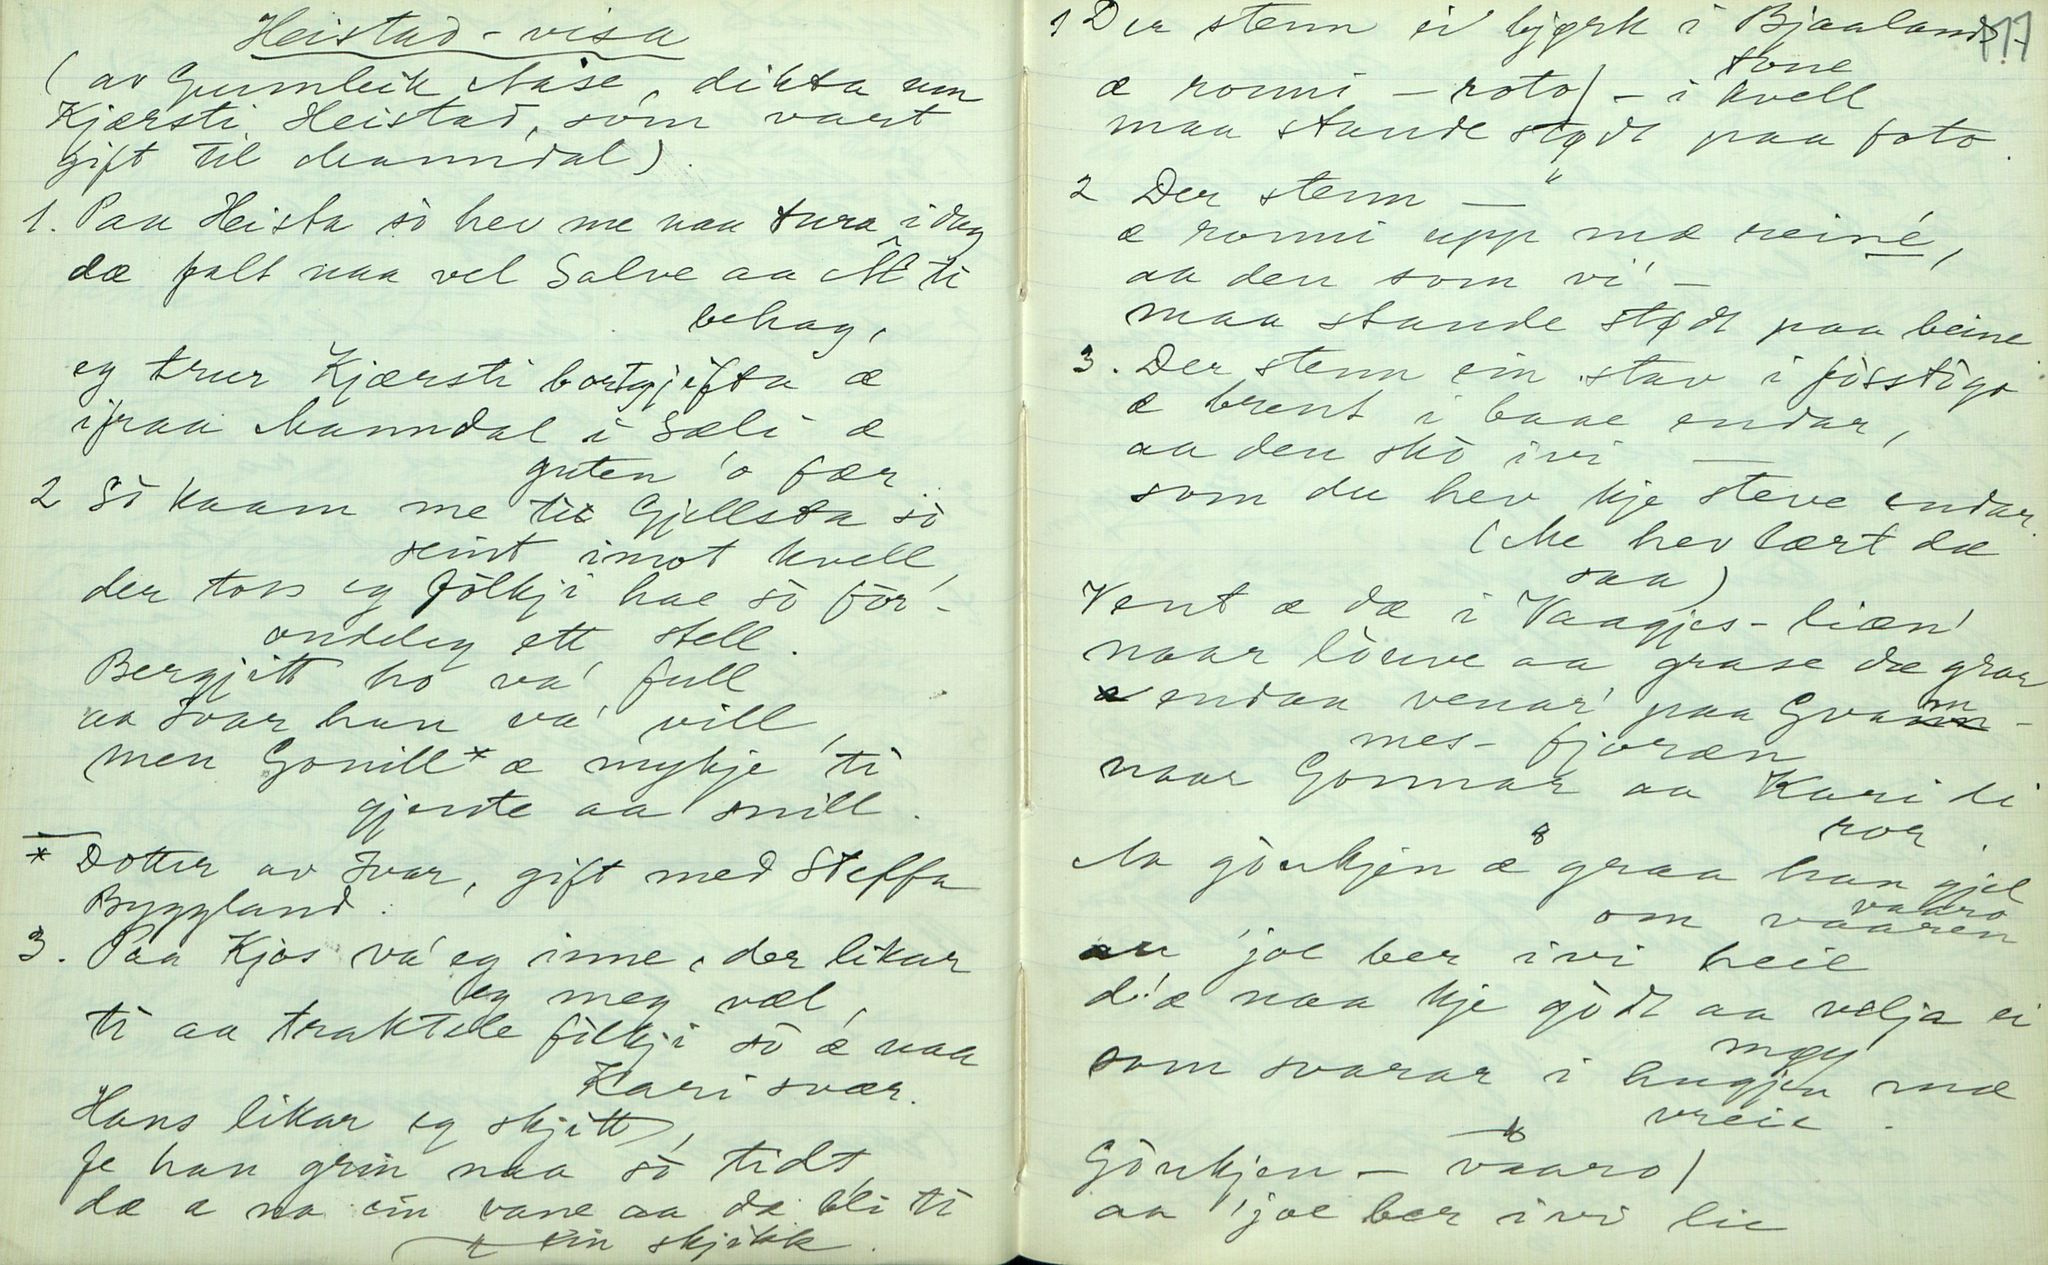 Heistad-visa
(av Gunnleik Aase, dikta um
Kjærsti Heistad, som vart
gift til Manndal).
1. Paa Heista so hev me naa tura i dag
dæ falt naa vel Salve aa M ti
behag,
eg trur Kjærsti bortgjifta æ
ifraa Manndal i Sæli æ
guten 'o fær
2 So kaam me til Gjellsta so
seint imot kvell,
der tots eg fölkji hae so for-
ondeleg ett stell.
Bergjitt ho va' full
aa Ivar han va' vill,
men Gonill* æ mykje ti
gjente aa snill.
* Dotter av Ivar, gift med Steffa
Byggland.
3. Paa Kjos va' eg inne, der likar
eg meg væl,
ti aa traktele fölkji so æ naa
Kari svær.
Hans likar eg skjitt,
fe han grin naa so tidt,
dæ æ na ein vane aa dæ bli ti
ein skjikk.
177
1 Der stenn ei bjørk i Bjaalands-
tone
æ ronni - roto) - i kvell
maa stande stødt paa foto.
2 Der stenn — "
æ ronni upp mæ reine,
aa den som vi' -
maa stande stødt paa beine
3. Der stenn ein stav i fösstögo
æ brent i baae endar,
aa den sko ivi —
som du hev kje steve endar.
(Me hev lært dæ
saa)
Vent æ dæ i Vaagjes-liæn'
naar löuve aa grase dæ gror
endaa venar' paa Gvam-
mes-fjoræn
naar Gonnar aa Kari di
ror.
Aa göukjen æ graa han gjel
om vaaren
vaaro
'joe ber ivi heie
d'æ naa kje godt aa velja ei
møy
som svarar i hugjen mæ
vreie.
Göukjen - vaaro)
aa 'joe ber ivi lie